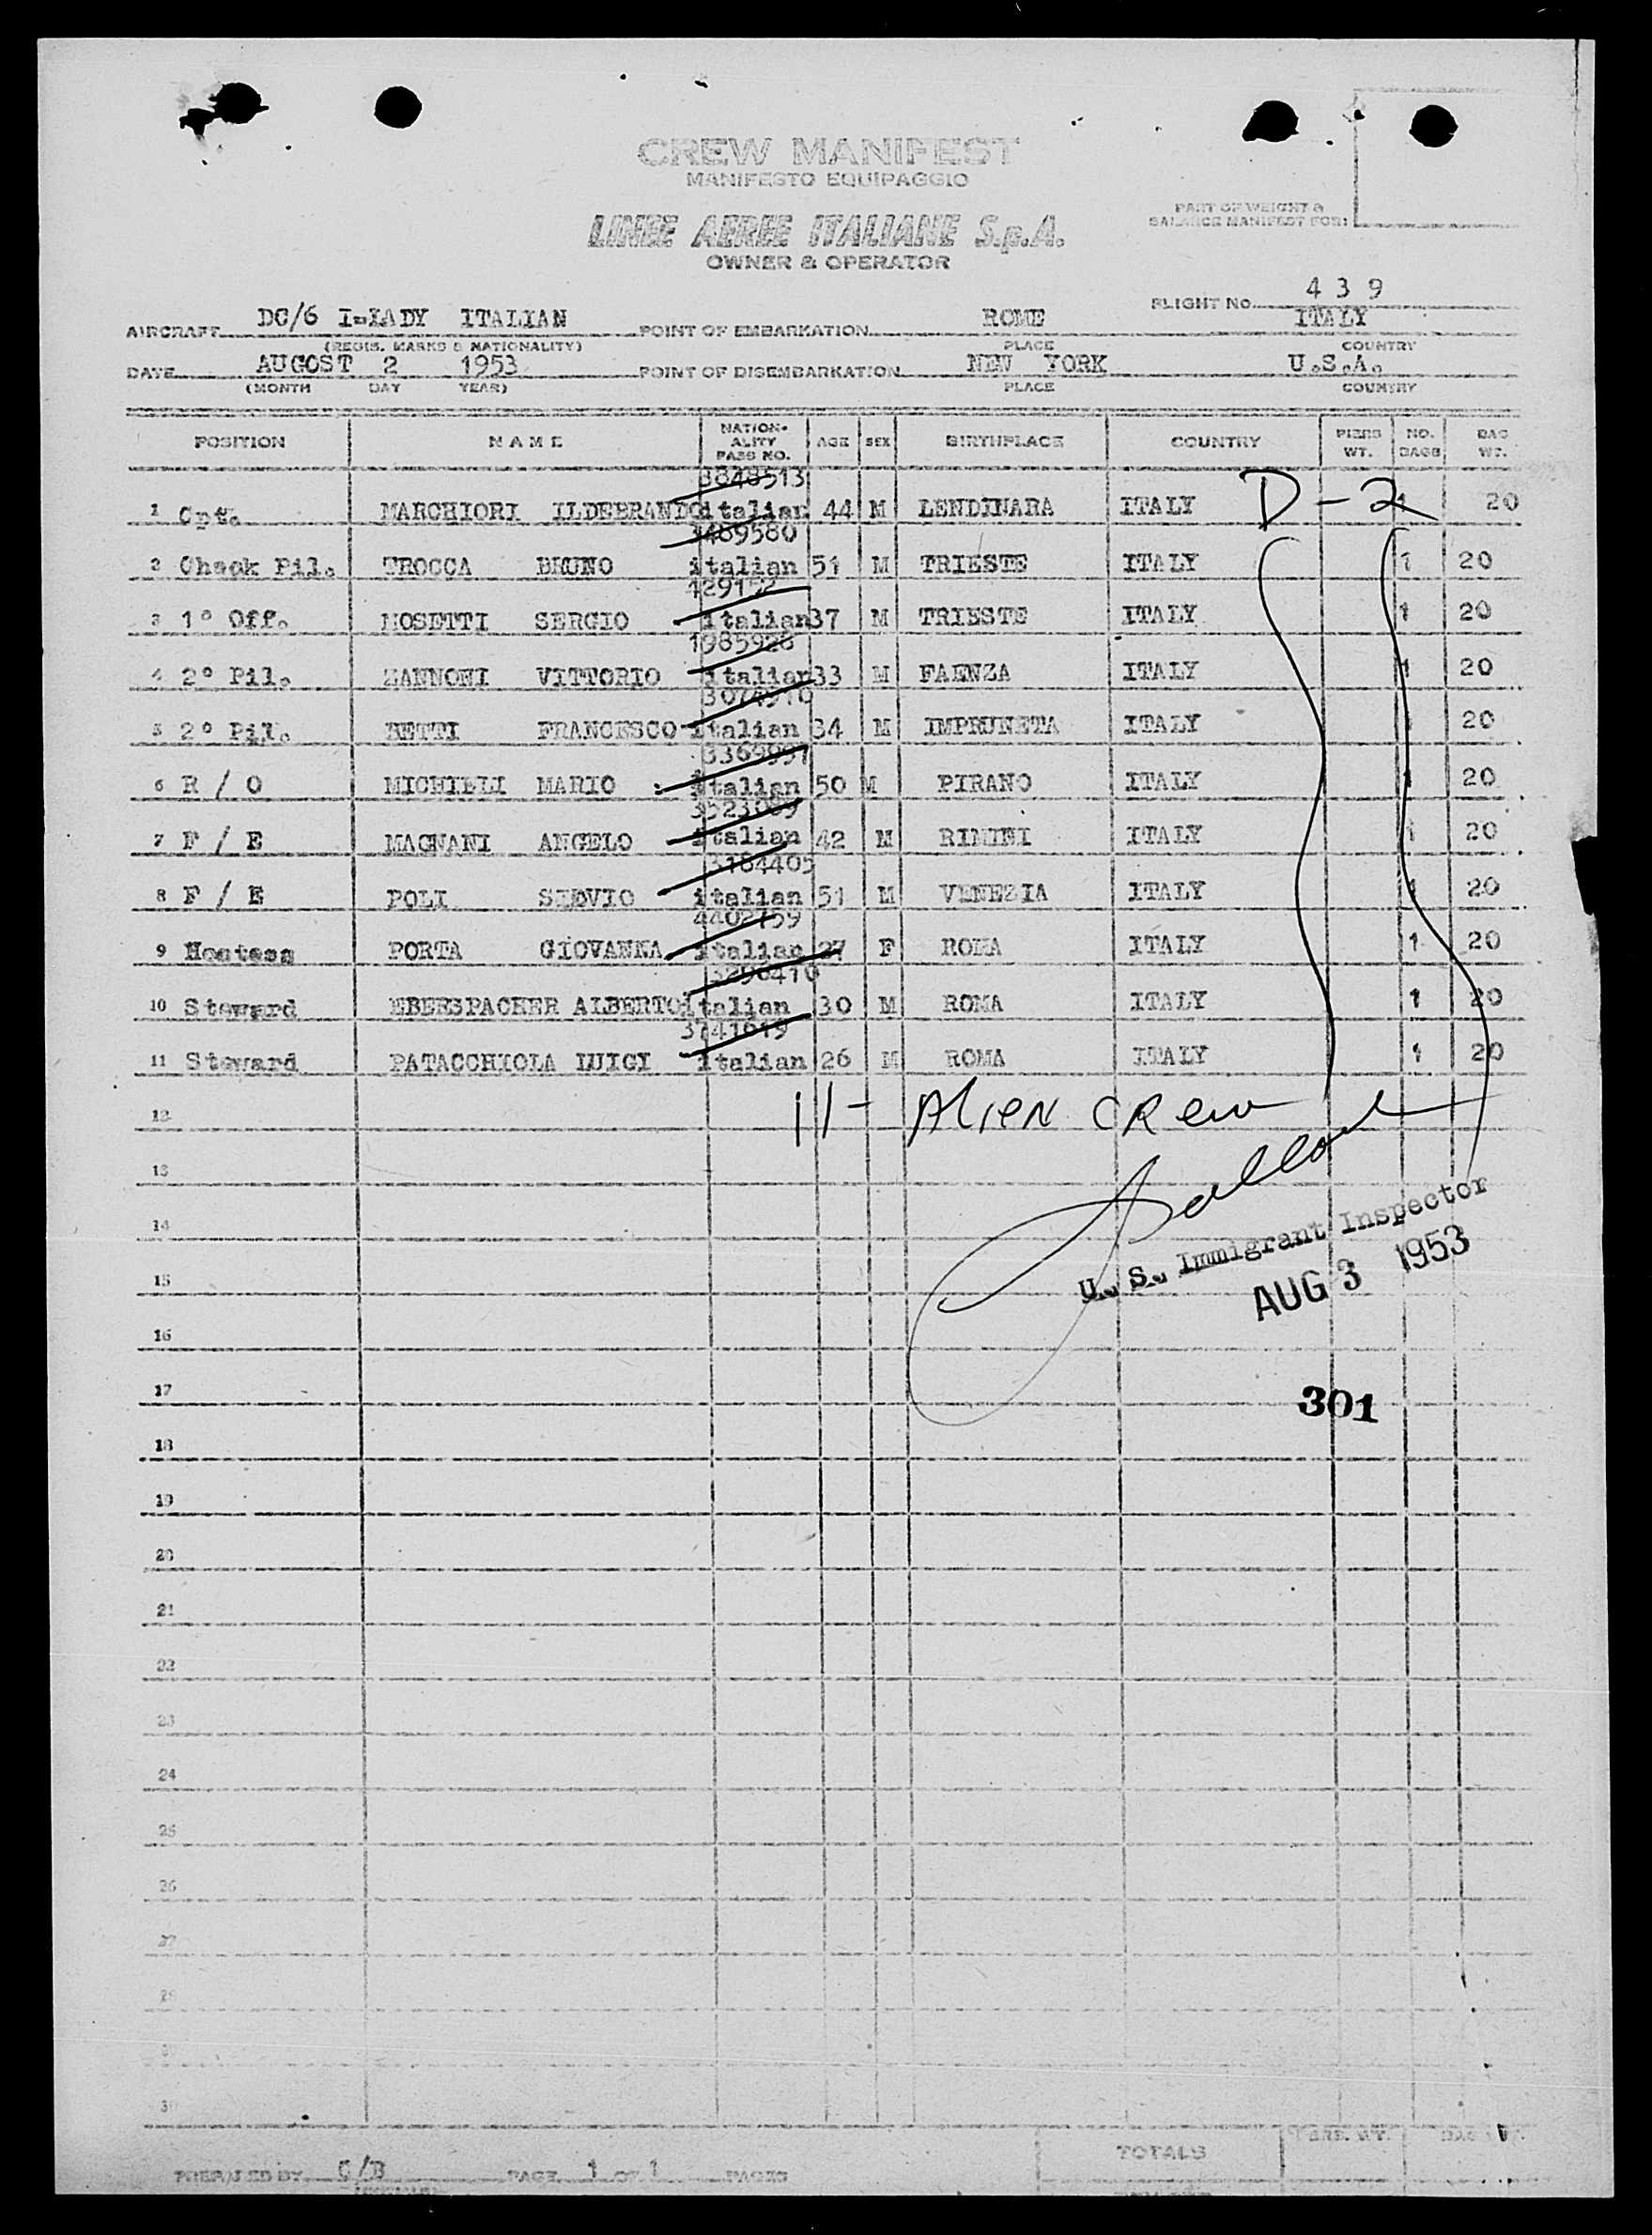 CREW MANIFEST
MANIFESTO EQUIPAGGIO
PART OF WEIGHT &
BALANCE MANIFEST FOR:
LINEE AEREE ITALIANE S.p.A.
OWNER & OPERATOR
FLIGHT NO. 439
AIRCRAFT DC/6 I-LADY ITALIAN POINT OF EMBARKATION ROME ITALY
(REGIS. MARKS & NATIONALITY) PLACE COUNTRY
DATE AUGOST 2 1953 POINT OF DISEMBARKATION NEW YORK U.S.A.
(MONTH DAY YEAR) PLACE COUNTRY
POSITION NAME NATION-ALITY PASS NO. AGE SEX BIRTHPLACE COUNTRY PIERS WT. NO. BAGS BAG WT.
3848513
1 Cpt. MARCHIORI ILDEBRANDO italian 44 M LENDINARA ITALY D-2 1 20
1469580
2 Check Pil. TROCCA BRUNO italian 51 M TRIESTE ITALY 1 20
129152
3 1° Off. MOSETTI SERGIO italian 37 M TRIESTE ITALY 1 20
1985928
4 2° Pil. ZANNONI VITTORIO italian 33 M FAENZA ITALY 1 20
5 2° Pil. BETTI FRANCESCO italian 34 M IMPRUNETA ITALY 1 20
6 R / O MICHIELI MARIO italian 50 M PIRANO ITALY 1 20
7 F / E MAGNANI ANGELO italian 42 M RIMINI ITALY 1 20
3184405
8 F / E POLI italian 51 M VENEZIA ITALY 1 20
4402759
9 Hostess PORTA GIOVANNA italian 27 F ROMA ITALY 1 20
3290410
10 Steward EBERSPACHER ALBERTO italian 30 M ROMA ITALY 1 20
3741619
11 Steward PATACCHIOLA LUIGI italian 26 M ROMA ITALY 1 20
12 11- Alien Crew
13
14
U. S. Immigrant Inspector
15
AUG 3 1953
16
17
301
18
19
20
21
22
23
24
25
26
27
28
30
TOTALS
PREPARED BY C/B PAGE 1 OF 1 PAGES